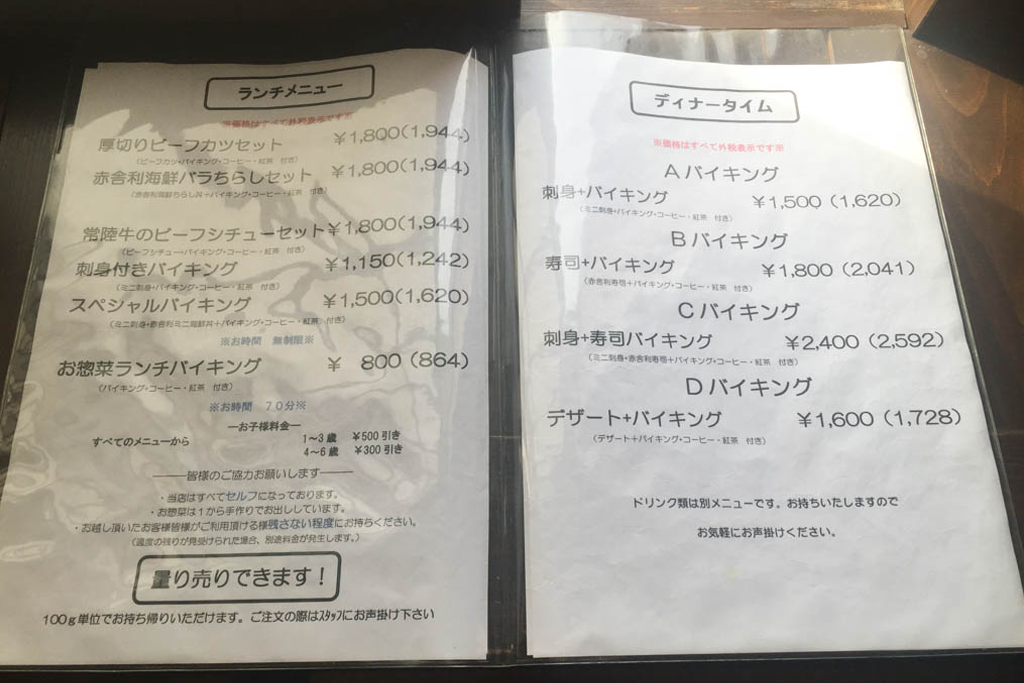 ランチメニュー
※価格はすべて外税表示です※
厚切りビーフカツセット ￥1,800(1,944)
(ビーフカツ・バイキング・コーヒー・紅茶 付き)
赤舎利海鮮バラちらしセット ￥1,800(1,944)
(赤舎利海鮮ちらし丼+バイキング・コーヒー・紅茶 付き)
常陸牛のビーフシチューセット ￥1,800(1,944)
(ビーフシチュー・バイキング・コーヒー・紅茶 付き)
刺身付きバイキング ￥1,150(1,242)
(ミニ刺身・バイキング・コーヒー・紅茶 付き)
スペシャルバイキング ￥1,500(1,620)
(ミニ刺身・赤舎利ミニ海鮮丼+バイキング・コーヒー・紅茶 付き)
※お時間 無制限※
お惣菜ランチバイキング ￥ 800 (864)
(バイキング・コーヒー・紅茶 付き)
※お時間 70分※
―お子様料金―
すべてのメニューから 1～3 歳 ￥500 引き
4～6 歳 ￥300 引き
――皆様のご協力お願いします――
・当店はすべてセルフになっております。
・お惣菜は1から手作りでお出ししています。
・お越し頂いたお客様皆様がご利用頂ける様残さない程度にお持ちください。
(過度の残りが見受けられた場合、別途料金が発生します。)
量り売りできます！
100ｇ単位でお持ち帰りいただけます。ご注文の際はスタッフにお声掛け下さい
ディナータイム
※価格はすべて外税表示です※
Aバイキング
刺身+バイキング ￥1,500 (1,620)
(ミニ刺身・バイキング・コーヒー・紅茶 付き)
Bバイキング
寿司+バイキング ￥1,800 (2,041)
(赤舎利寿司+バイキング・コーヒー・紅茶 付き)
Cバイキング
刺身+寿司バイキング ￥2,400 (2,592)
(ミニ刺身・赤舎利寿司+バイキング・コーヒー・紅茶 付き)
Dバイキング
デザート+バイキング ￥1,600 (1,728)
(デザート+バイキング・コーヒー・紅茶 付き)
ドリンク類は別メニューです。お持ちいたしますので
お気軽にお声掛けください。